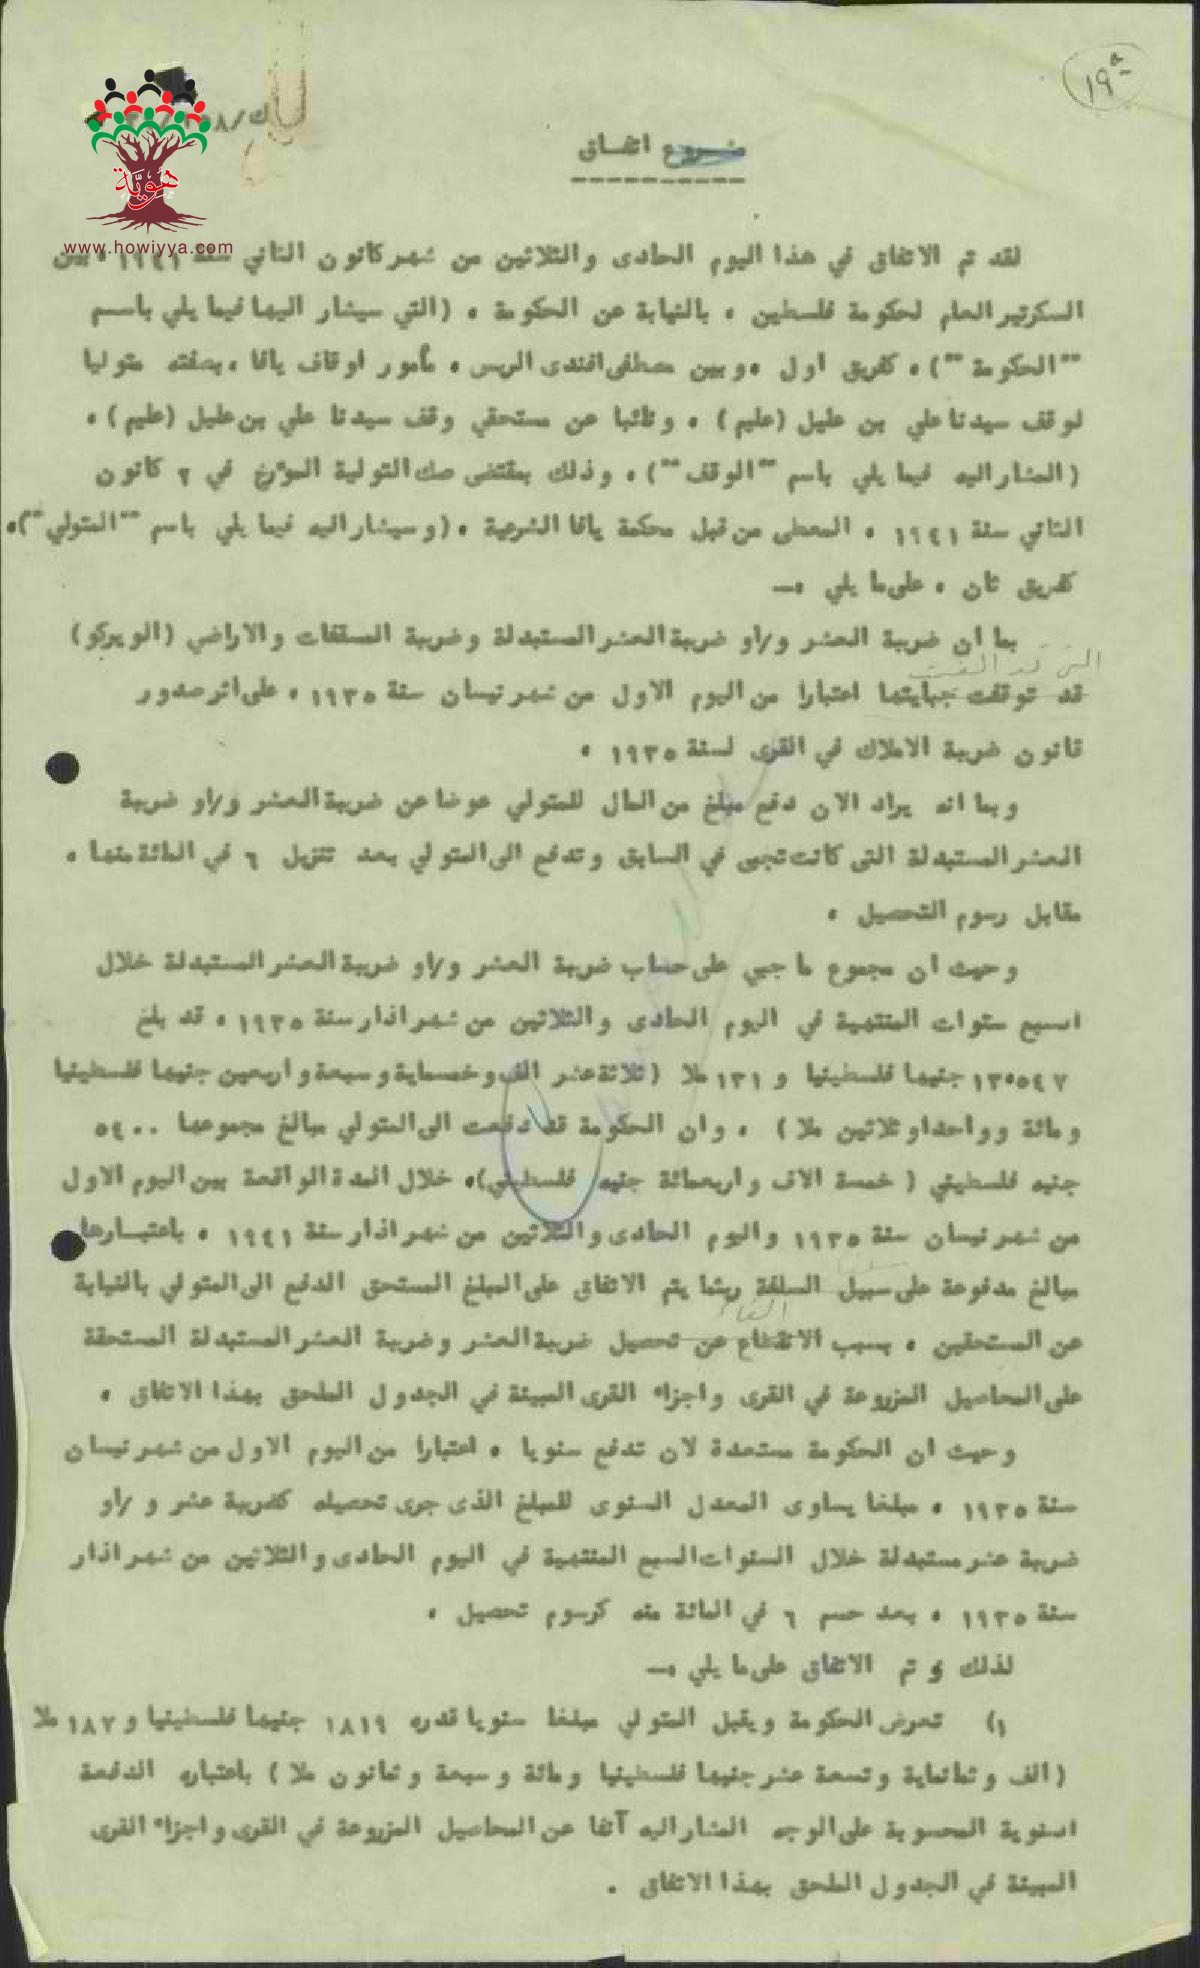 19a
ك/
مشروع اتفاق
هوية
www.howiyya.com
لقد تم الاتفاق في هذا اليوم الحادى والثلاثين من شهر كانون الثاني سنة ١٩٤١ ، بين
السكرتير العام لحكومة فلسطين ، بالنيابة عن الحكومة ، (التي سيشار اليها فيما يلي باسم
""الحكومة"") ، كفريق اول ، وبين مصطفى افندى الريس ، مأمور اوقاف يافا ، بصفته متوليا
لوقف سيدنا علي بن عليل (عليم) ، ونائبا عن مستحقي وقف سيدنا علي بن عليل (عليم) ،
(المشار اليه فيما يلي باسم ""الوقف"") ، وذلك بمقتضى صك التولية المؤرخ في ٢ كانون
الثاني سنة ١٩٤١ ، المعطى من قبل محكمة يافا الشرعية ، (وسيشار اليه فيما يلي باسم ""المتولي"") ،
كفريق ثان ، على ما يلي :ـ
بما ان ضريبة العشر و/او ضريبة العشر المستبدلة وضريبة المسقفات والاراضي (الويركو)
التي قد الغيت
قد توقفت جبايتها اعتبارا من اليوم الاول من شهر نيسان سنة ١٩٣٥ ، على اثر صدور
قانون ضريبة الاملاك في القرى لسنة ١٩٣٥ ،
وبما انه يراد الان دفع مبلغ من المال للمتولي عوضا عن ضريبة العشر و/او ضريبة
العشر المستبدلة التى كانت تجبى في السابق وتدفع الى المتولي بعد تنزيل ٦ في المائة منها ،
مقابل رسوم التحصيل ،
وحيث ان مجموع ما جبي على حساب ضريبة العشر و/او ضريبة العشر المستبدلة خلال
السبع سنوات المنتهية في اليوم الحادى والثلاثين من شهر اذار سنة ١٩٣٥ ، قد بلغ
١٣٠٥٤٧ جنيها فلسطينيا و ١٣١ ملا (ثلاثة عشر الف وخمسماية وسبعة واربعين جنيها فلسطينيا
ومائة وواحدا وثلاثين ملا) ، وان الحكومة قد دفعت الى المتولي مبالغ مجموعها ٥٤٠٠
جنيه فلسطيني (خمسة الاف واربعمائة جنيه فلسطيني) ، خلال المدة الواقعة بين اليوم الاول
من شهر نيسان سنة ١٩٣٥ واليوم الحادى والثلاثين من شهر اذار سنة ١٩٤١ ، باعتبارها
مبالغ مدفوعة على سبيل السلفة ريثما يتم الاتفاق على المبلغ المستحق الدفع الى المتولي بالنيابة
الغاء
عن المستحقين ، بسبب الانقطاع عن تحصيل ضريبة العشر وضريبة العشر المستبدلة المستحقة
على المحاصيل المزروعة في القرى واجزاء القرى المبينة في الجدول الملحق بهذا الاتفاق ،
وحيث ان الحكومة مستعدة لان تدفع سنويا ، اعتبارا من اليوم الاول من شهر نيسان
سنة ١٩٣٥ ، مبلغا يساوى المعدل السنوى للمبلغ الذى جرى تحصيله كضريبة عشر و/او
ضريبة عشر مستبدلة خلال السنوات السبع المنتهية في اليوم الحادى والثلاثين من شهر اذار
سنة ١٩٣٥ ، بعد حسم ٦ في المائة منه كرسوم تحصيل ،
لذلك تم الاتفاق على ما يلي :ـ
١) تعرض الحكومة ويقبل المتولي مبلغا سنويا قدره ١٨١٩ جنيها فلسطينيا و١٨٧ ملا
(الف وثمانماية وتسعة عشر جنيها فلسطينيا ومائة وسبعة وثمانون ملا) باعتباره الدفعة
السنوية المحسوبة على الوجه المشار اليه آنفا عن المحاصيل المزروعة في القرى واجزاء القرى
المبينة في الجدول الملحق بهذا الاتفاق .